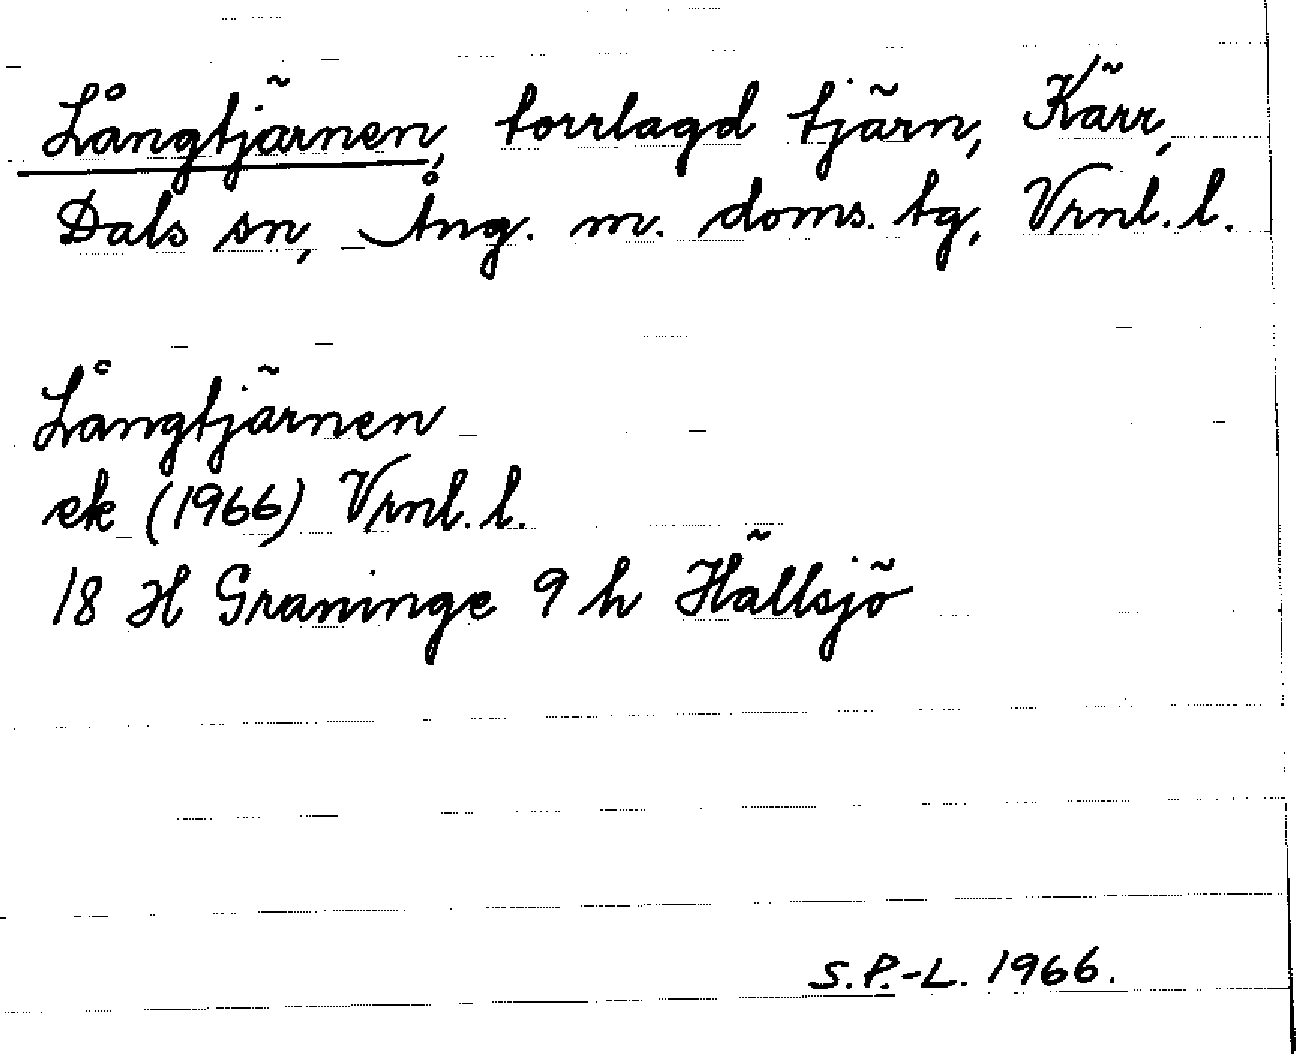 Långtjärnen, torrlagd tjärn, Kärr,
Dals sn, Ång. m. doms. tg, Vrnl. l.
Långtjärnen
ek (1966) Vrnl. l.
18 H Graninge 9 h Hällsjö
S.P.-L. 1966.